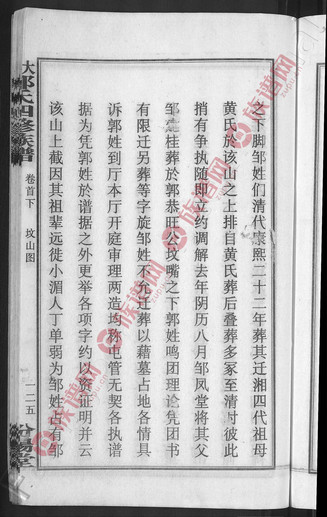 之下脚邹姓们清代康熙二十二年葬其迁湘四代祖母
黄氏於该山之土排自黄氏葬后叠葬多冢至清时彼此
捎有争执随即立约调解去年阴历八月邹凤堂将其父
邹桂葬於郭恭旺公坟嘴之下郭姓鸣团理论凭团书
有限迁另葬等字旋邹姓不允迁葬以藉墓占地各情具
诉郭姓到厅本厅开庭审理两造均称电管无契各执谱
据为凭郭姓於谱据之外更举各项字约以资证明并云
该山上截因其祖辈远徙小湄人丁单弱为邹姓占有邹
大郭氏四修族谱
卷首下
坟山图
一二五
汾阳堂
族谱网
www.zupu.cn